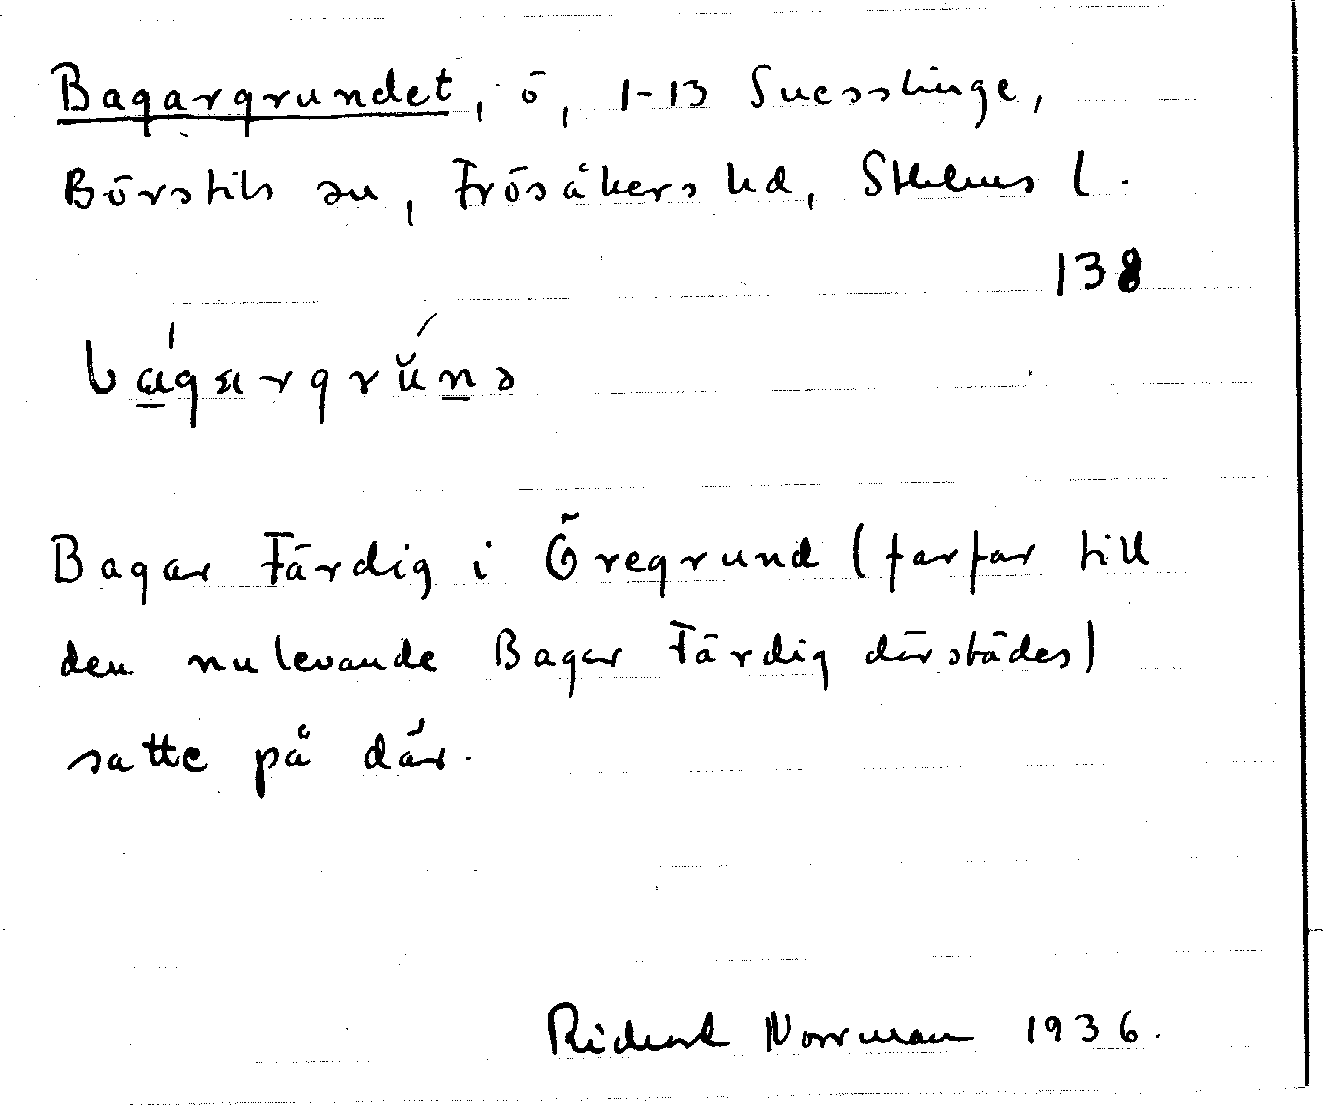 Bagargrundet, ö, 1-13 Snesslinge,
Börstils sn, Frösåkers hd, Sthlms l.
138
bagargrŭnə
Bagar Färdig i Öregrund (farfar till
den nu levande Bagar Färdig därstädes)
satte på där.
Rickard Norrman 1936.